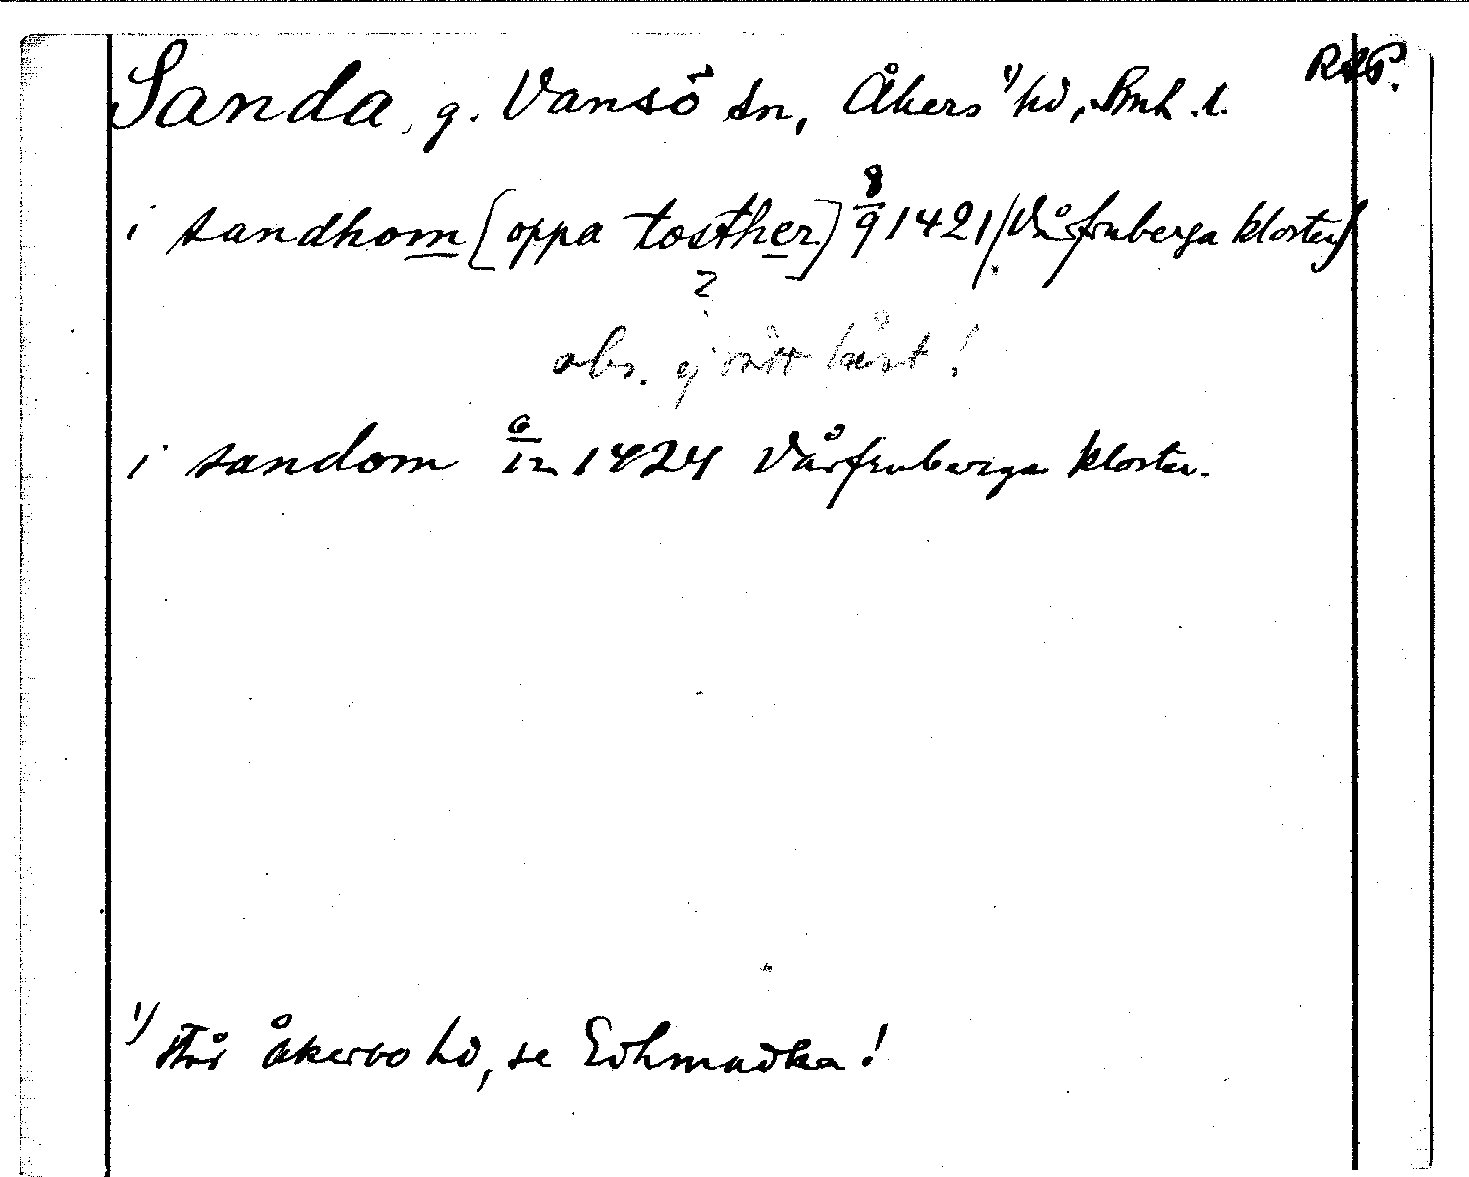 Sanda, g. Vansö sn, Åkers ¹⁾ hd, Sml. l. RAP.
i sandhom [oppa tosther] 8/9 1421 (Vårfruberga kloster)
?
obs. ej rätt läst!
i sandom 6/12 1424 Vårfruberga kloster.
¹⁾ står åkerbo hd, se Edhmadka!